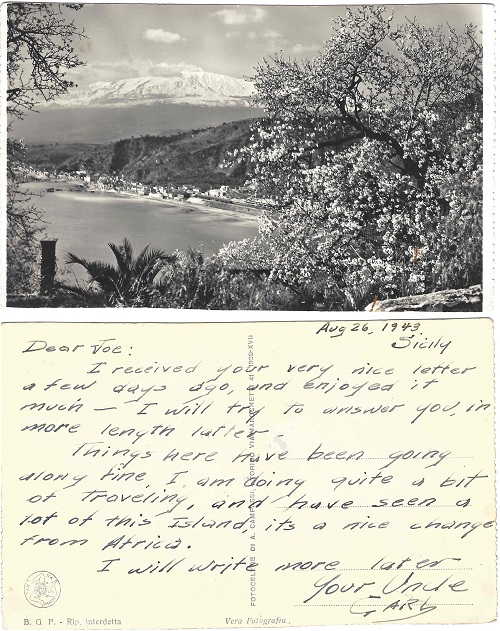 Aug 26, 1943
Sicily
Dear Joe:
I received your very nice letter
a few days ago, and enjoyed it
much — I will try to answer you, in
more length latter
Things here have been going
along fine, I am doing quite a bit
of traveling, and have seen a
lot of this Island, its a nice change
from Africa.
I will write more later
Your Uncle
GARY
B. G. P. - Rip. interdetta
Vera Fotografia.